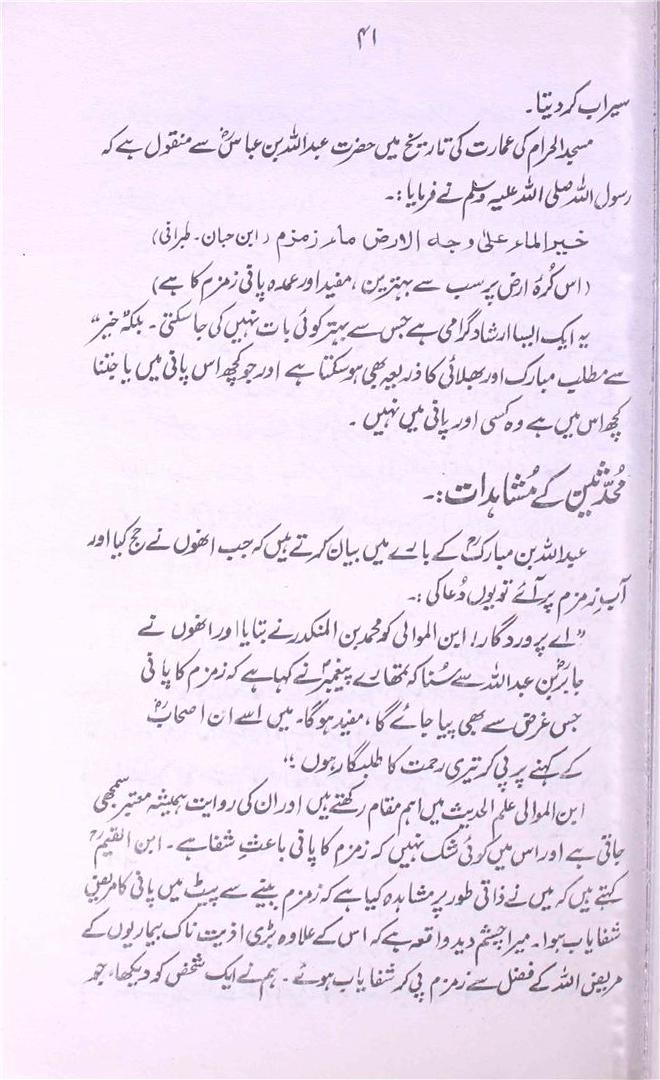 ۴۱
سیراب کر دیتا۔
مسجد الحرام کی عمارت کی تاریخ میں حضرت عبداللہ بن عباسؓ سے منقول ہے کہ
رسول اللہ صلی اللہ علیہ وسلم نے فرمایا:۔
خیر الماء علیٰ وجہ الارض ماء زمزم (ابن حبان۔ طبرانی)
(اس کُرۂ ارض پر سب سے بہترین، مفید اور عمدہ پانی زمزم کا ہے)
یہ ایک ایسا ارشاد گرامی ہے جس سے بہتر کوئی بات نہیں کی جا سکتی۔ بلکہ خیر”
سے مطلب مبارک اور بھلائی کا ذریعہ بھی ہو سکتا ہے اور جو کچھ اس پانی میں یا جتنا
کچھ اس میں ہے وہ کسی اور پانی میں نہیں۔
مُحدّثین کے مُشاہدات:۔
عبداللہ بن مبارکؒ کے بارے میں بیان کرتے ہیں کہ جب انھوں نے حج کیا اور
آبِ زمزم پر آئے تو یوں دُعا کی:۔
”اے پروردگار! ابن الموالی کو محمد بن المنکدر نے بتایا اور انھوں نے
جابرؓ بن عبداللہ سے سُنا کہ تمھارے پیغمبرؐ نے کہا ہے کہ زمزم کا پانی
جس غرض سے بھی پیا جائے گا، مفید ہو گا۔ میں اسے ان اصحابؓ
کے کہنے پر پی کر تیری رحمت کا طلبگار ہوں؛“
ابن الموالی علم الحدیث میں اہم مقام رکھتے ہیں اور ان کی روایت ہمیشہ معتبر سمجھی
جاتی ہے اور اس میں کوئی شک نہیں کہ زمزم کا پانی باعثِ شفا ہے۔ ابن القیمؒ
کہتے ہیں کہ میں نے ذاتی طور پر مشاہدہ کیا ہے کہ زمزم پینے سے پیٹ میں پانی کا مریض
شفایاب ہوا۔ میرا چشم دید واقعہ ہے کہ اس کے علاوہ بڑی اذیت ناک بیماریوں کے
مریض اللہ کے فضل سے زمزم پی کر شفایاب ہوئے۔ ہم نے ایک شخص کو دیکھا، جو